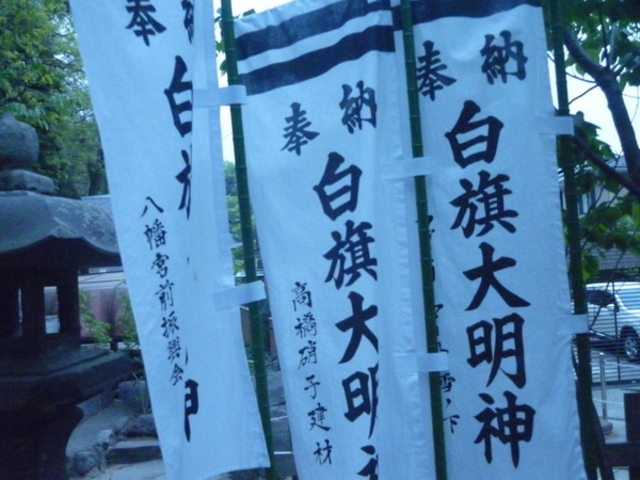 奉納
白旗大明神
奉納
白旗大明
高橋硝子建材
奉
白
八幡宮前振興会